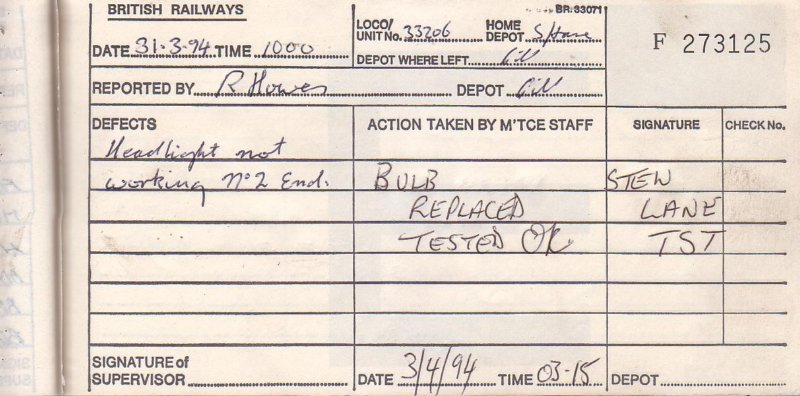 BRITISH RAILWAYS
BR. 33071
DATE 31-3-94 TIME 1000
LOCO/UNIT No. 33206 HOME DEPOT
F 273125
DEPOT WHERE LEFT
REPORTED BY R Howes DEPOT
DEFECTS ACTION TAKEN BY M'TCE STAFF SIGNATURE CHECK No.
Headlight not
working No2 End. BULB STEW
REPLACED LANE
TESTED OK TST
SIGNATURE of
SUPERVISOR DATE 3/4/94 TIME 03-15 DEPOT